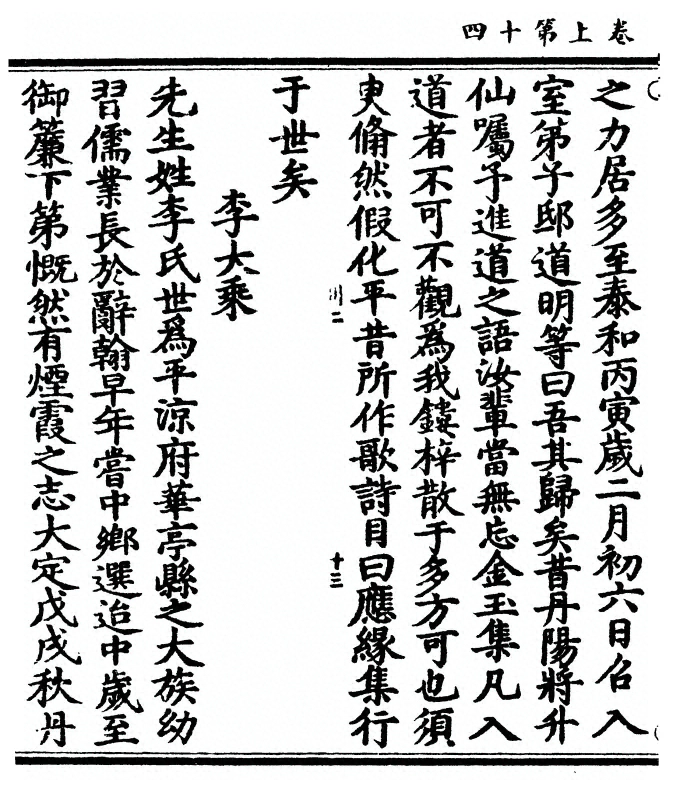 卷上第十四
之力居多至泰和丙寅歲二月初六日召入
室弟子邸道明等曰吾其歸矣昔丹陽將升
仙囑予進道之語汝輩當無忘金玉集凡入
道者不可不觀爲我鏤梓散于多方可也須
臾翛然假化平昔所作歌詩目曰應緣集行
于世矣
李大乘
先生姓李氏世爲平涼府華亭縣之大族幼
習儒業長於辭翰早年嘗中鄉選迨中歲至
御簾下第慨然有煙霞之志大定戊戌秋丹
川二
十三